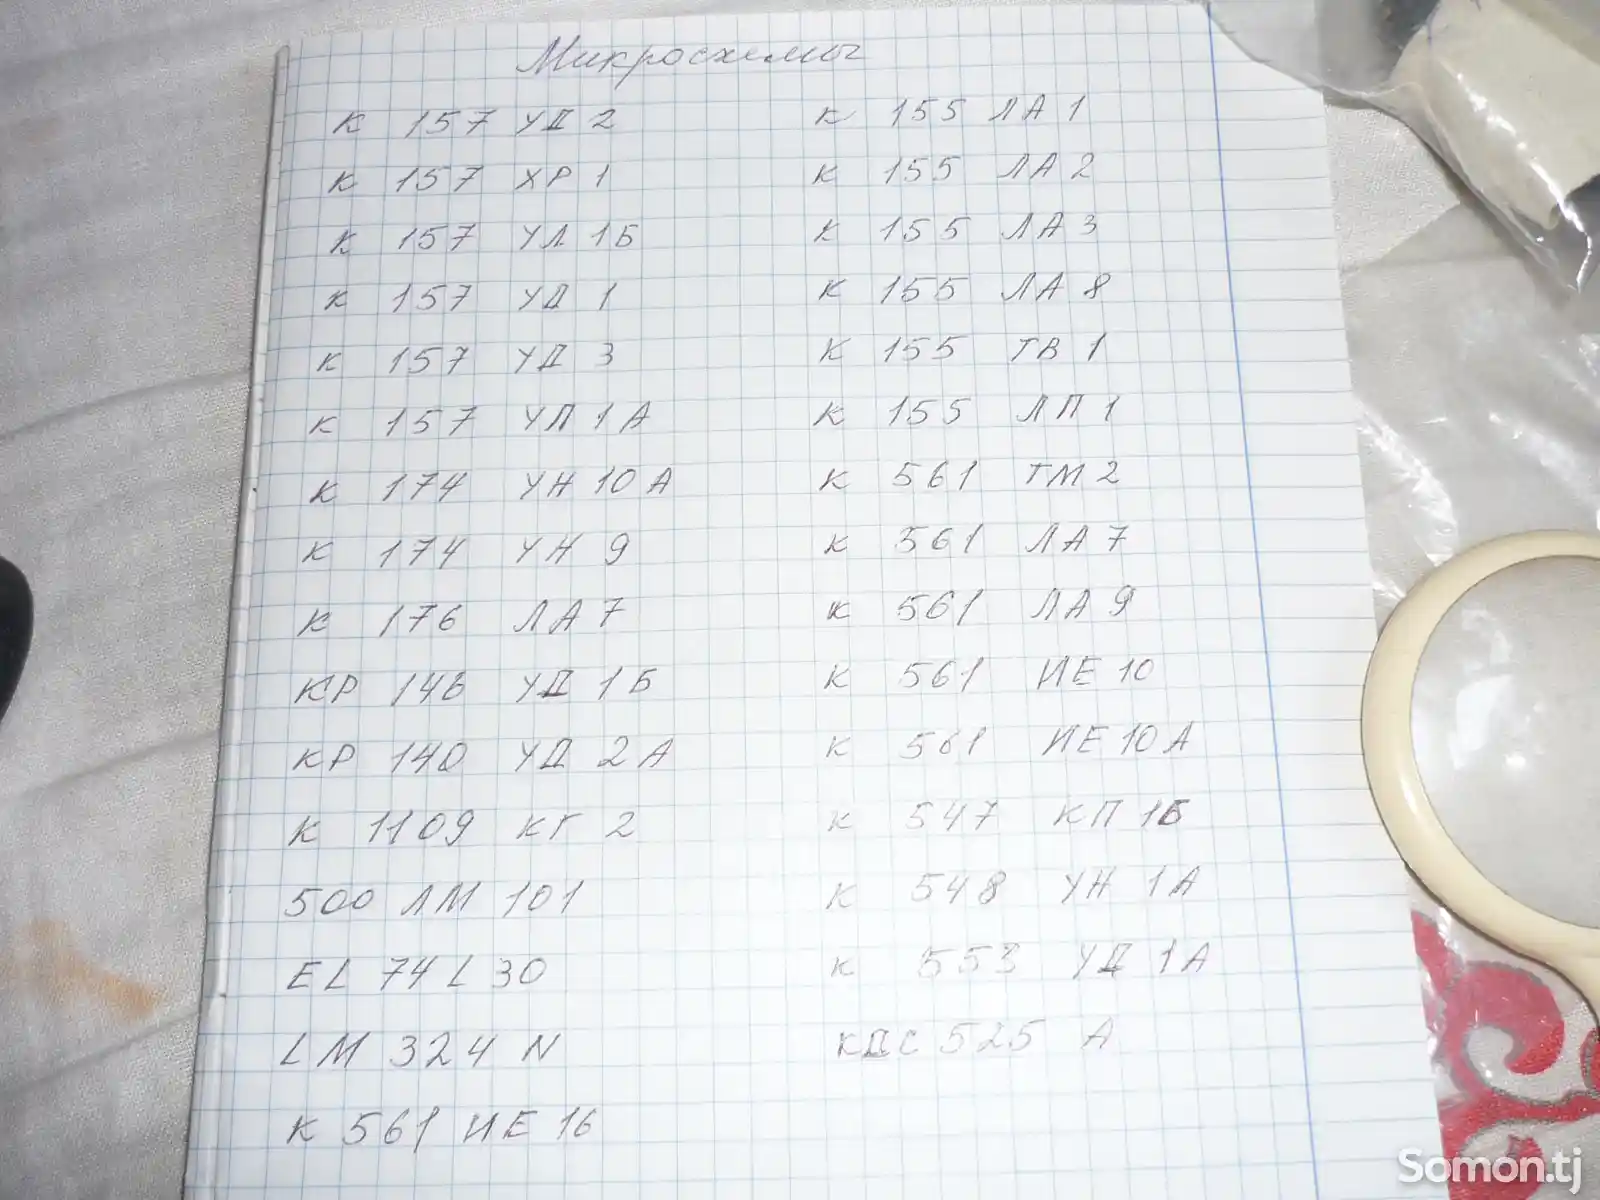 Микросхемы
К 157 УД 2
К 157 ХР 1
К 157 УЛ 1Б
К 157 УД 1
К 157 УД 3
К 157 УЛ 1А
К 174 УН 10 А
К 174 УН 9
К 176 ЛА 7
КР 146 УД 1Б
КР 140 УД 2 А
К 1109 КГ 2
500 ЛМ 101
EL 74 L 30
LM 324 N
К 561 ИЕ 16
К 155 ЛА 1
К 155 ЛА 2
К 155 ЛА 3
К 155 ЛА 8
К 155 ТВ 1
К 155 ЛП 1
К 561 ТМ 2
К 561 ЛА 7
К 561 ЛА 9
К 561 ИЕ 10
К 561 ИЕ 10 А
К 547 КП 1Б
К 548 УН 1А
К 553 УД 1А
КДС 525 А
Somon.tj